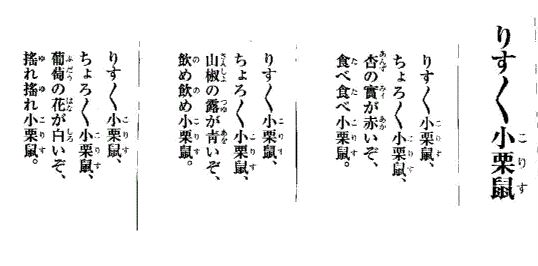 りす〱小栗鼠
りす〱小栗鼠、
ちょろ〱小栗鼠、
杏の實が赤いぞ、
食べ食べ小栗鼠。
りす〱小栗鼠、
ちょろ〱小栗鼠、
山椒の露が青いぞ、
飲め飲め小栗鼠。
りす〱小栗鼠、
ちょろ〱小栗鼠、
葡萄の花が白いぞ、
搖れ搖れ小栗鼠。